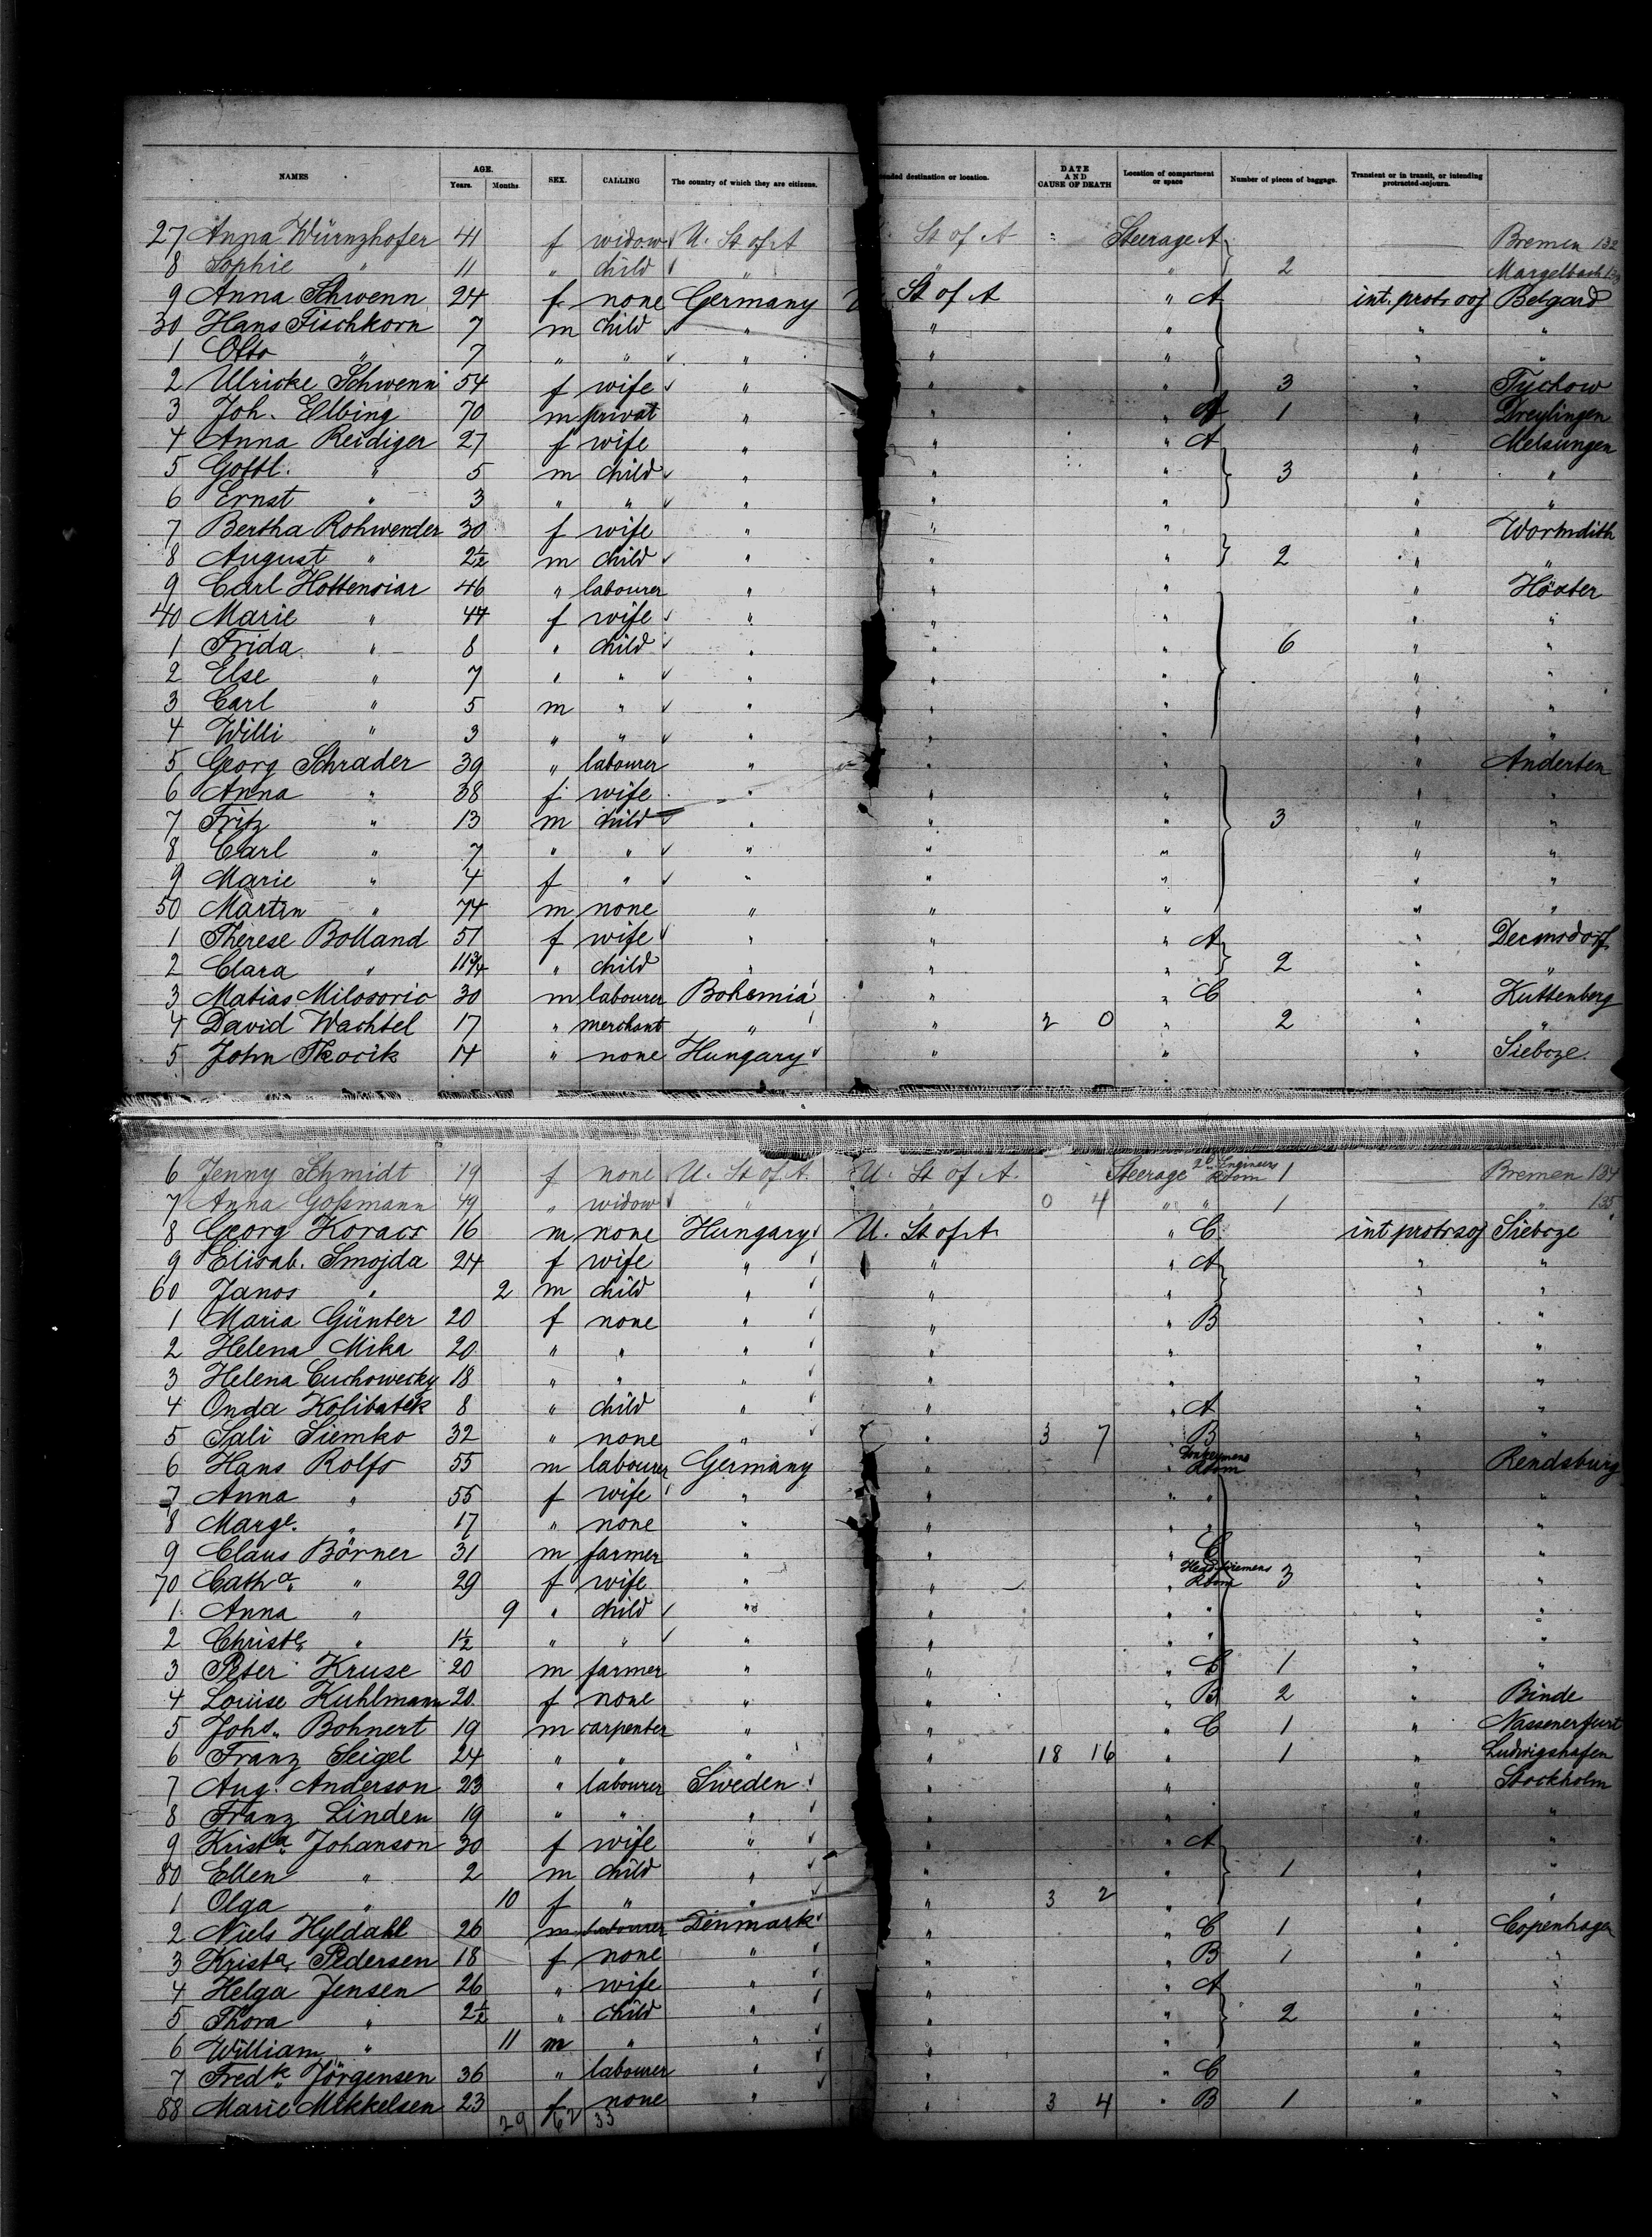 NAMES AGE. Years. Months. SEX. CALLING The country of which they are citizens. ended destination or location. DATE AND CAUSE OF DEATH Location of compartment or space Number of pieces of baggage. Transient or in transit, or intending protracted sojourn.
27 Anna Würnzhofer 41 f widow U. St of A St of A Steerage A Bremen 132
8 Sophie " 11 " child " " " 2 Margelbach
9 Anna Schwenn 24 f none Germany St of A " A int. protr soj Belgard
30 Hans Fischkorn 7 m child " " " " "
1 Otto " 7 " " " " " " "
2 Ulricke Schwenn 54 f wife " " " 3 " Tychow
3 Joh. Elbing 70 m privat " " " A 1 " Dreylingen
4 Anna Reidiger 27 f wife " " " A " Melsungen
5 Gottl. " 5 m child " " " 3 " "
6 Ernst " 3 " " " " " " "
7 Bertha Rohwender 30 f wife " " " " Wormdith
8 August " 2½ m child " " " 2 " "
9 Carl Hottensiar 46 " labourer " " " " Höxter
40 Marie " 44 f wife " " " " "
1 Frida " 8 " child " " " 6 " "
2 Else " 7 " " " " " " "
3 Carl " 5 m " " " " " "
4 Willi " 3 " " " " " " "
5 Georg Schrader 39 " labourer " " " " Anderten
6 Anna " 38 f wife " " " " "
7 Fritz " 13 m child " " " 3 " "
8 Carl " 7 " " " " " " "
9 Marie " 4 f " " " " " "
50 Martin " 74 m none " " " " "
1 Therese Bolland 51 f wife " " " A " Dermsdorf
2 Clara " 11¾ " child " " " 2 " "
3 Matias Milosoric 30 m labourer Bohemia " " C " Kuttenberg
4 David Wachtel 17 " merchant " " 2 0 " 2 " "
5 John Tkocik 14 " none Hungary " " " Sieboze.
6 Jenny Schmidt 19 f none U. St of A. U. St of A. Steerage 2d Engineers Room 1 Bremen 134
7 Anna Goßmann 49 " widow " " 0 4 " " 1 " 135
8 Georg Koracs 16 m none Hungary U. St of A. " C int protr soj Sieboze
9 Elisab. Smojda 24 f wife " " " A " "
60 Janos " 2 m child " " " " "
1 Maria Günter 20 f none " " " B " "
2 Helena Mika 20 " " " " " " "
3 Helena Cuchowecky 18 " " " " " " "
4 Onda Kolibatek 8 " child " " " A " "
5 Sali Siemko 32 " none " " 3 7 " B " "
6 Hans Rolfs 55 m labourer Germany " " Donkeymens Room " Rendsburg
7 Anna " 55 f wife " " " " " "
8 Marge. " 17 " none " " " " " "
9 Claus Börner 31 m farmer " " " C " "
70 Catha " 29 f wife " " " Headfiremens Room 3 " "
1 Anna " 9 " child " " " " " "
2 Christe " 1½ " " " " " " " "
3 Peter Kruse 20 m farmer " " " C 1 " "
4 Louise Kuhlmann 20 f none " " " B 2 " Binde
5 Johs. Bohnert 19 m carpenter " " " C 1 " Nassenerfurt
6 Franz Seigel 24 " " " " 18 16 " 1 " Ludwigshafen
7 Aug. Anderson 23 " labourer Sweden " " " Stockholm
8 Franz Linden 19 " " " " " " "
9 Krista Johanson 30 f wife " " " A " "
80 Ellen " 2 m child " " " 1 " "
1 Olga " 10 f " " " 3 2 " " "
2 Niels Hyldahl 26 m labourer Denmark " " C 1 " Copenhagen
3 Krista. Pedersen 18 f none " " " B 1 " "
4 Helga Jensen 26 " wife " " " A " "
5 Thora " 2½ " child " " " 2 " "
6 William " 11 m " " " " " "
7 Fredk. Jörgensen 36 " labourer " " " C " "
88 Marie Mikkelsen 23 f none " " 3 4 " B 1 " "
29 62 33